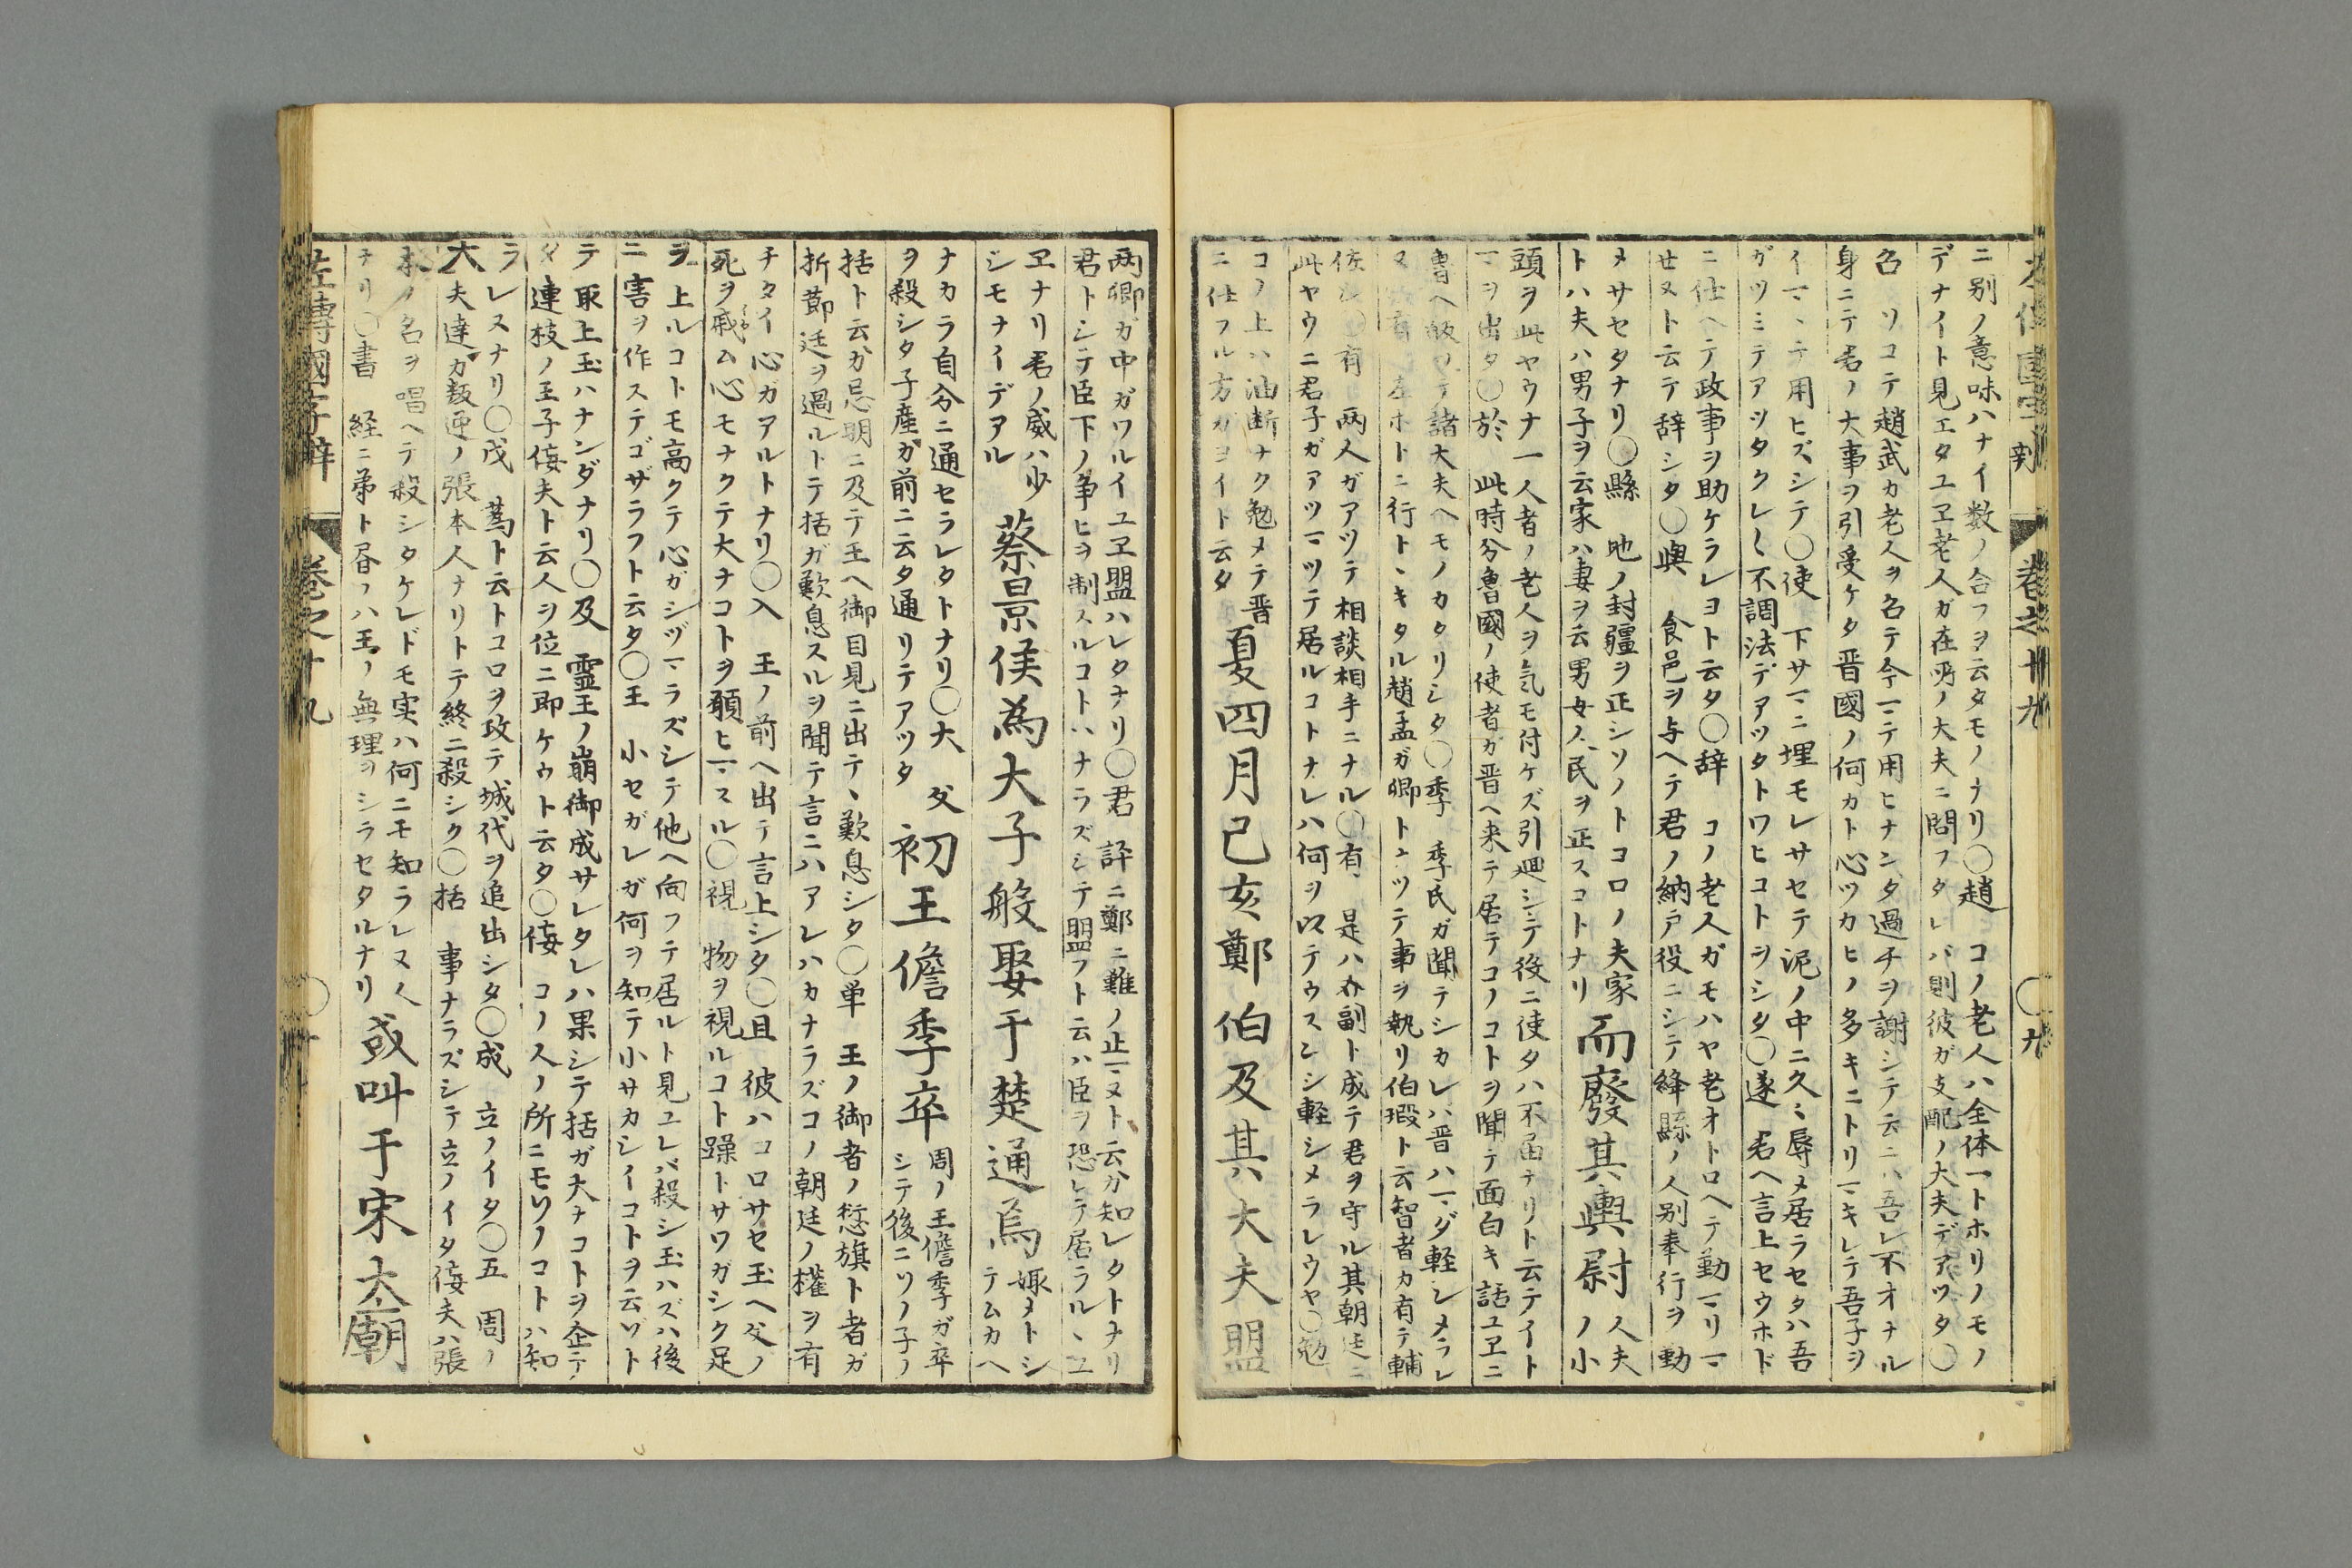 ニ別ノ意味ハナイ数ノ合フヲ云タモノナリ〇趙 コノ老人ハ全体一トホリノモノ
デナイト見エタユヱ老人ガ在所ノ大夫ニ問フタレバ則彼ガ支配ノ大夫デアツタ〇
名 ソコテ趙武カ老人ヲ名テ今マテ用ヒナンタ過チヲ謝シテ云ニハ吾レ不オナル
身ニテ君ノ大事ヲ引受ケタ晋國ノ何カト心ツカヒノ多キニトリマキレテ吾子ヲ
イマヽテ用ヒズシテ〇使 下サマニ埋モレサセテ泥ノ中ニ久ミ辱メ居ラセタハ吾
ガツミテアツタクレ〱不調法デアツタトワヒコトヲシタ〇遂 君ヘ言上セウホド
ニ仕ヘテ政事ヲ助ケラレヨト云タ〇辞 コノ老人ガモハヤ老オトロヘテ勤マリマ
セヌト云テ辞シタ〇與 食邑ヲ与ヘテ君ノ納戸役ニシテ絳縣ノ人別奉行ヲ勤
メサセタナリ〇縣 地ノ封疆ヲ正シソノトコロノ夫家
トハ夫ハ男子ヲ云家ハ妻ヲ云男女ノ民ヲ正スコトナリ
而廢其輿尉
人夫
ノ小
頭ヲ此ヤウナ一人者ノ老人ヲ気モ付ケズ引廻シテ役ニ使タハ不届ナリト云テイト
マヲ出タ〇於 此時分魯國ノ使者ガ晋ヘ来テ居テコノコトヲ聞テ面白キ話ユヱニ
魯ヘ皈リテ諸大夫ヘモノカタリシタ〇季 季氏ガ聞テシカレハ晋ハマダ軽シメラレ
ヌ 左ホトニ行トヽキタル趙孟ガ卿トナツテ事ヲ執リ伯瑕ト云智者カ有テ輔
佐 〇有 両人ガアツテ相談相手ニナル〇有 是ハ介副ト成テ君ヲ守ル其朝廷ニ
此ヤウニ君子ガアツマツテ居ルコトナレハ何ヲ以テウスンシ軽シメラレウヤ〇勉
コノ上ハ油断ナク勉メテ晋
ニ仕フル方ガヨイト云タ
夏四月己亥鄭伯及其大夫盟
両卿ガ中ガワルイユヱ盟ハレタナリ〇君 評ニ鄭ニ難ノ止マヌト云ガ知レタトナリ
君トシテ臣下ノ争ヒヲ制スルコトハナラズシテ盟フト云ハ臣ヲ恐レテ居ラルヽユ
ヱナリ君ノ威ハ少
シモナイデアル
蔡景侯為大子般娶于楚通焉
娵メトシ
テムカヘ
ナカラ自分ニ通セラレタトナリ〇大 父
ヲ殺シタ子産ガ前ニ云タ通リテアツタ
初王儋季卒
周ノ王儋季ガ卒
シテ後ニソノ子ノ
括ト云ガ忌明ニ及テ王ヘ御目見ニ出テヽ歎息シタ〇単 王ノ御者ノ愆旗ト者ガ
折節廷ヲ過ルトテ括ガ歎息スルヲ聞テ言ニハアレハカナラズコノ朝廷ノ権ヲ有
チタイ心ガアルトナリ〇入 王ノ前ヘ出テ言上シタ〇且 彼ハコロサセ玉ヘ父ノ
死ヲ戚ム心モナクテ大ナコトヲ願ヒマスル〇視 物ヲ視ルコト躁トサワガシク足
ヲ上ルコトモ高クテ心ガシヅマラズシテ他ヘ向フテ居ルト見ユレバ殺シ玉ハズハ後
ニ害ヲ作ステゴザラフト云タ〇王 小セガレガ何ヲ知テ小サカシイコトヲ云ゾト
テ取上玉ハナンダナリ〇及 霊王ノ崩御成サレタレハ果シテ括ガ大ナコトヲ企テ
タ連枝ノ王子佞夫ト云人ヲ位ニ即ケウト云タ〇佞 コノ人ノ所ニモソノコトハ知
ラレスナリ〇戊 蔿ト云トコロヲ攻テ城代ヲ追出シタ〇成 立ノイタ〇五 周ノ
大夫達カ叛逆ノ張本人ナリトテ終ニ殺シタ〇括 事ナラズシテ立ノイタ佞夫ハ張
本ノ名ヲ唱ヘテ殺シタケレドモ実ハ何ニモ知ラレヌ人
ナリ〇書 経ニ弟ト書フハ王ノ無理ヲシラセタルナリ
或叫于宋太廟
左傳國字辯 巻之十九 〇十